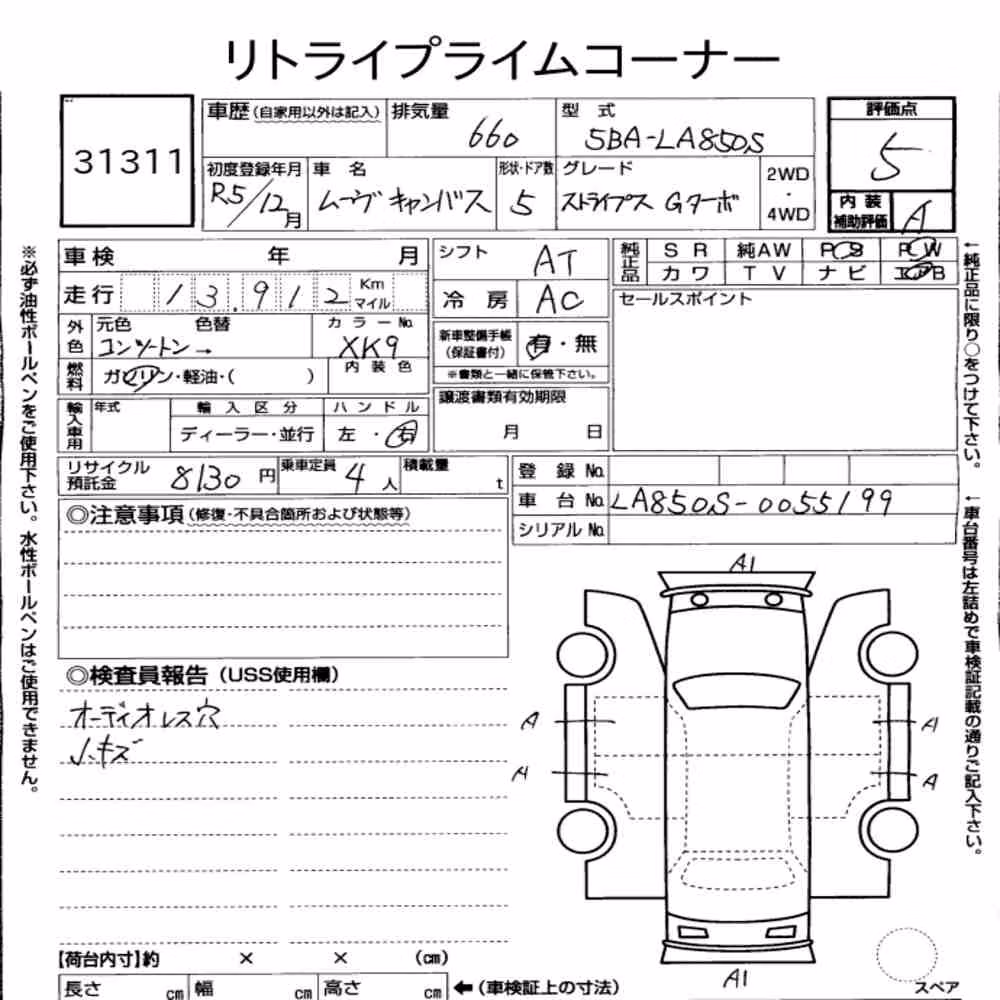 リトライプライムコーナー
31311
車歴(自家用以外は記入)
排気量
660
型 式
5BA-LA850S
評価点
5
初度登録年月
R5/12月
車 名
ムーヴ キャンバス
形状・ドア数
5
グレード
ストライプス Gターボ
2WD
・
4WD
内 装
補助評価
A
車検 年 月
走行 13,912 Km マイル
外色
元色 色替
コンツートン→
カラーNo.
XK9
燃料
ガソリン・軽油・( )
内装色
輸入車用
年式
輸入区分
ディーラー・並行
ハンドル
左・右
シフト
AT
冷 房
AC
新車整備手帳
(保証書付)
有・無
※書類と一緒に保管下さい。
譲渡書類有効期限
月 日
純正品
SR 純AW PS PW
カワ TV ナビ エアB
セールスポイント
リサイクル
預託金
8130 円
乗車定員
4 人
積載量
t
登 録 No.
車 台 No.
LA850S-0055199
シリアル No.
◎注意事項(修復・不具合箇所および状態等)
◎検査員報告(USS使用欄)
オーディオレス穴
小キズ
A1
A
A
A
A
A1
スペア
【荷台内寸】約 × × (cm)
長さ cm 幅 cm 高さ cm ←(車検証上の寸法)
※必ず油性ボールペンをご使用下さい。水性ボールペンはご使用できません。
←純正品に限り○をつけて下さい。
←車台番号は左詰めで車検証記載の通りご記入下さい。